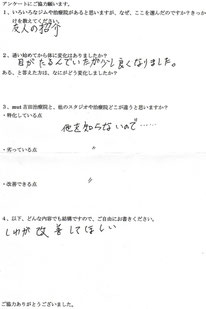 アンケートにご協力願います。
1、いろいろなジムや治療院があると思いますが、なぜ、ここを選んだのですか？きっか
けを教えてください。
友人の紹介
2、通い始めてから体に変化はありましたか？
目がたるんでいたが少し良くなりました。
ある、と答えた方は、なにがどう変化しましたか？
3、mut吉田治療院と、他のスタジオや治療院とどこが違うと思いますか？
・特化している点
他を知らないので……
・劣っている点
〃
・改善できる点
〃
4、以下、どんな内容でも結構ですので、ご自由にお書きください。
しわが改善してほしい
ご協力ありがとうございました。